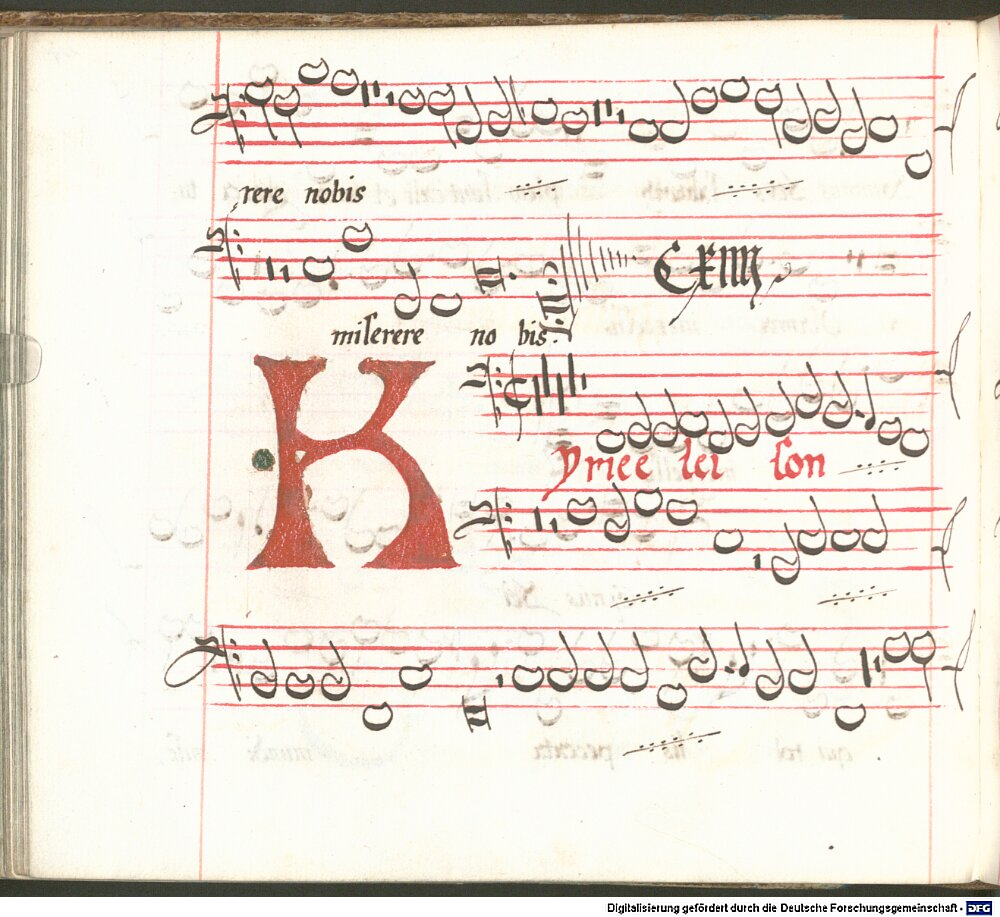 rere nobis
CXIIII
miserere no bis:
K
yriee lei son
Digitalisierung gefördert durch die Deutsche Forschungsgemeinschaft - DFG